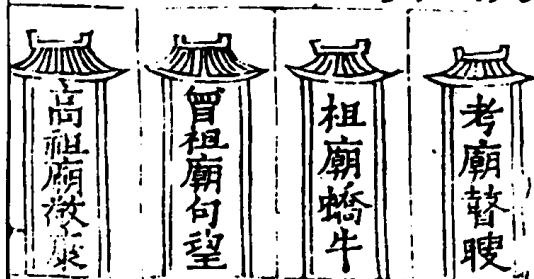 考廟瞽瞍
祖廟蟜牛
曾祖廟句望
高祖廟敬康